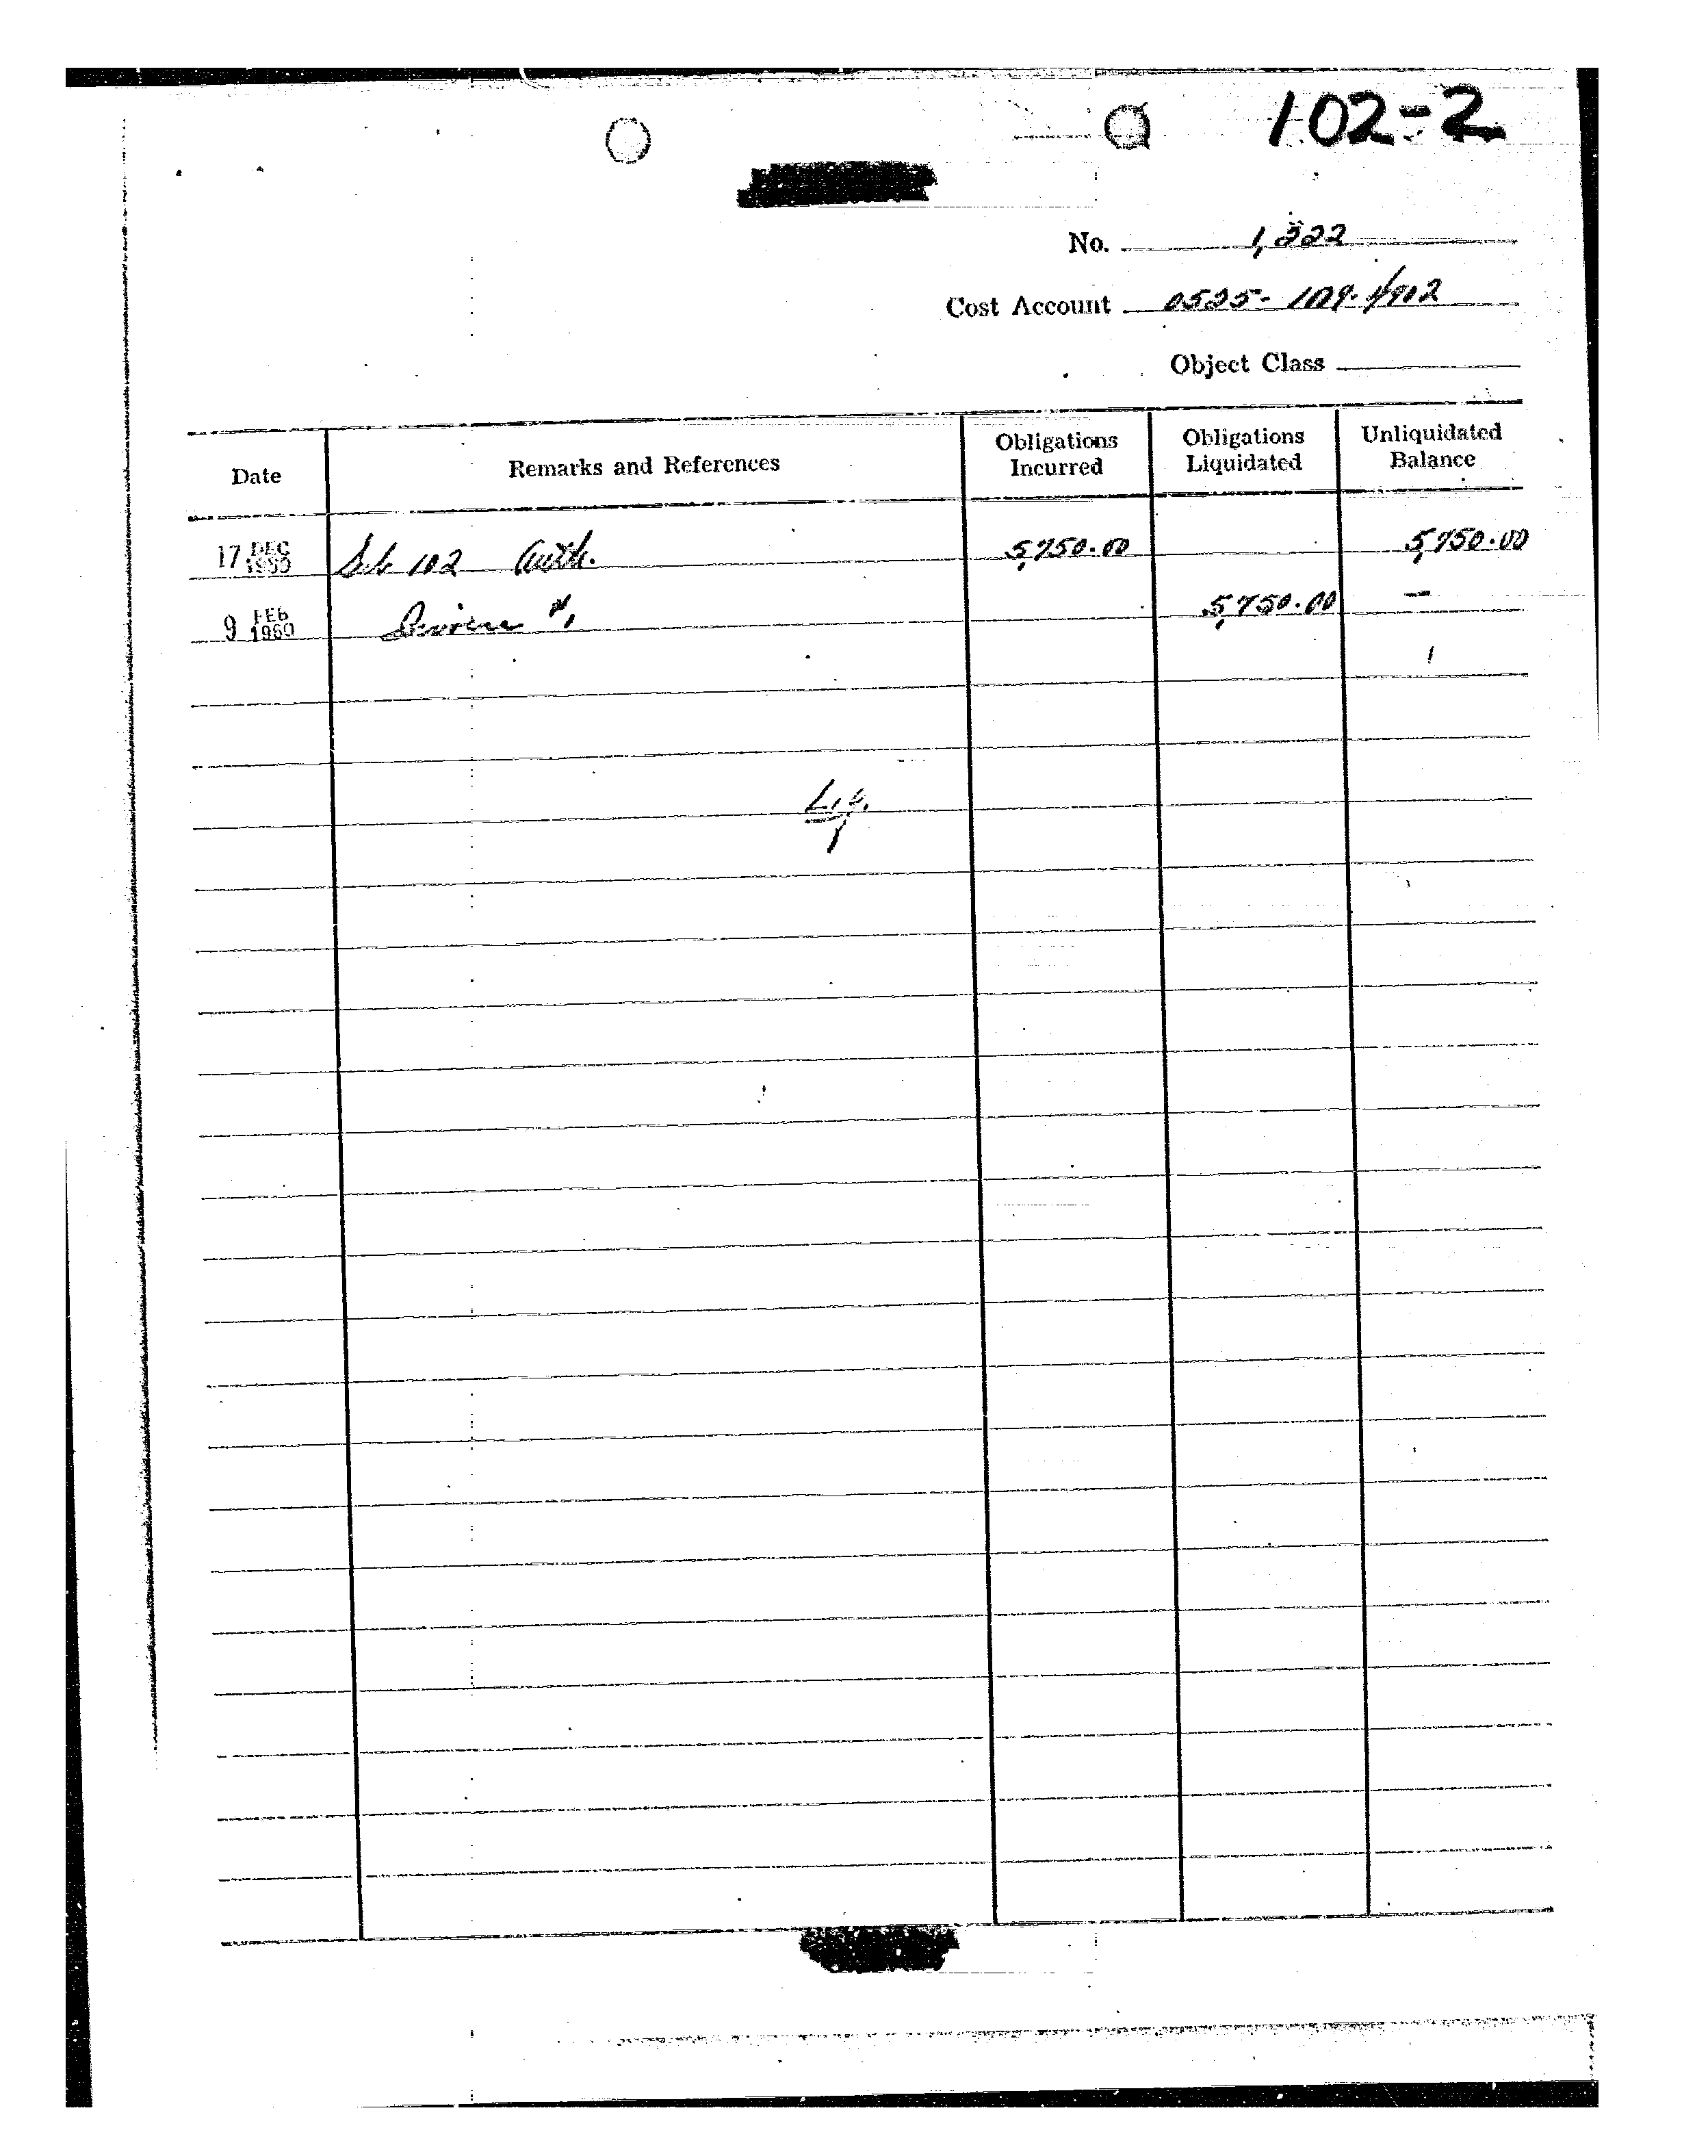 102-2
No. 1,322
Cost Account 0525-1009-4902
Object Class
Date Remarks and References Obligations Incurred Obligations Liquidated Unliquidated Balance
17 DEC 1959 Sub 102 Auth. 5,750.00 5,750.00
9 FEB 1960 Invoice #1 5,750.00 —